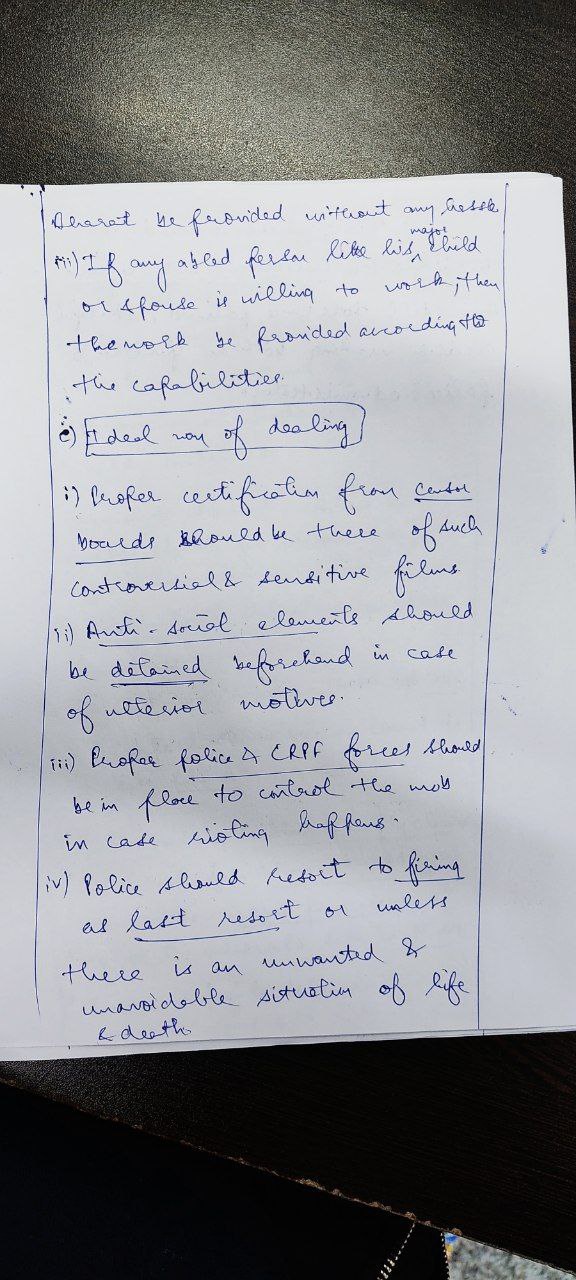 Bharat be provided without any hassle
iii) If any abled person like his major child
or spouse is willing to work, then
the work be provided according to
the capabilities.
e) Ideal way of dealing
i) Proper certification from censor
boards should be there of such
controversial & sensitive films
ii) Anti-social elements should
be detained beforehand in case
of ulterior motives.
iii) Proper police & CRPF forces should
be in place to control the mob
in case rioting happens.
iv) Police should resort to firing
as last resort or unless
there is an unwanted &
unavoidable situation of life
& death.